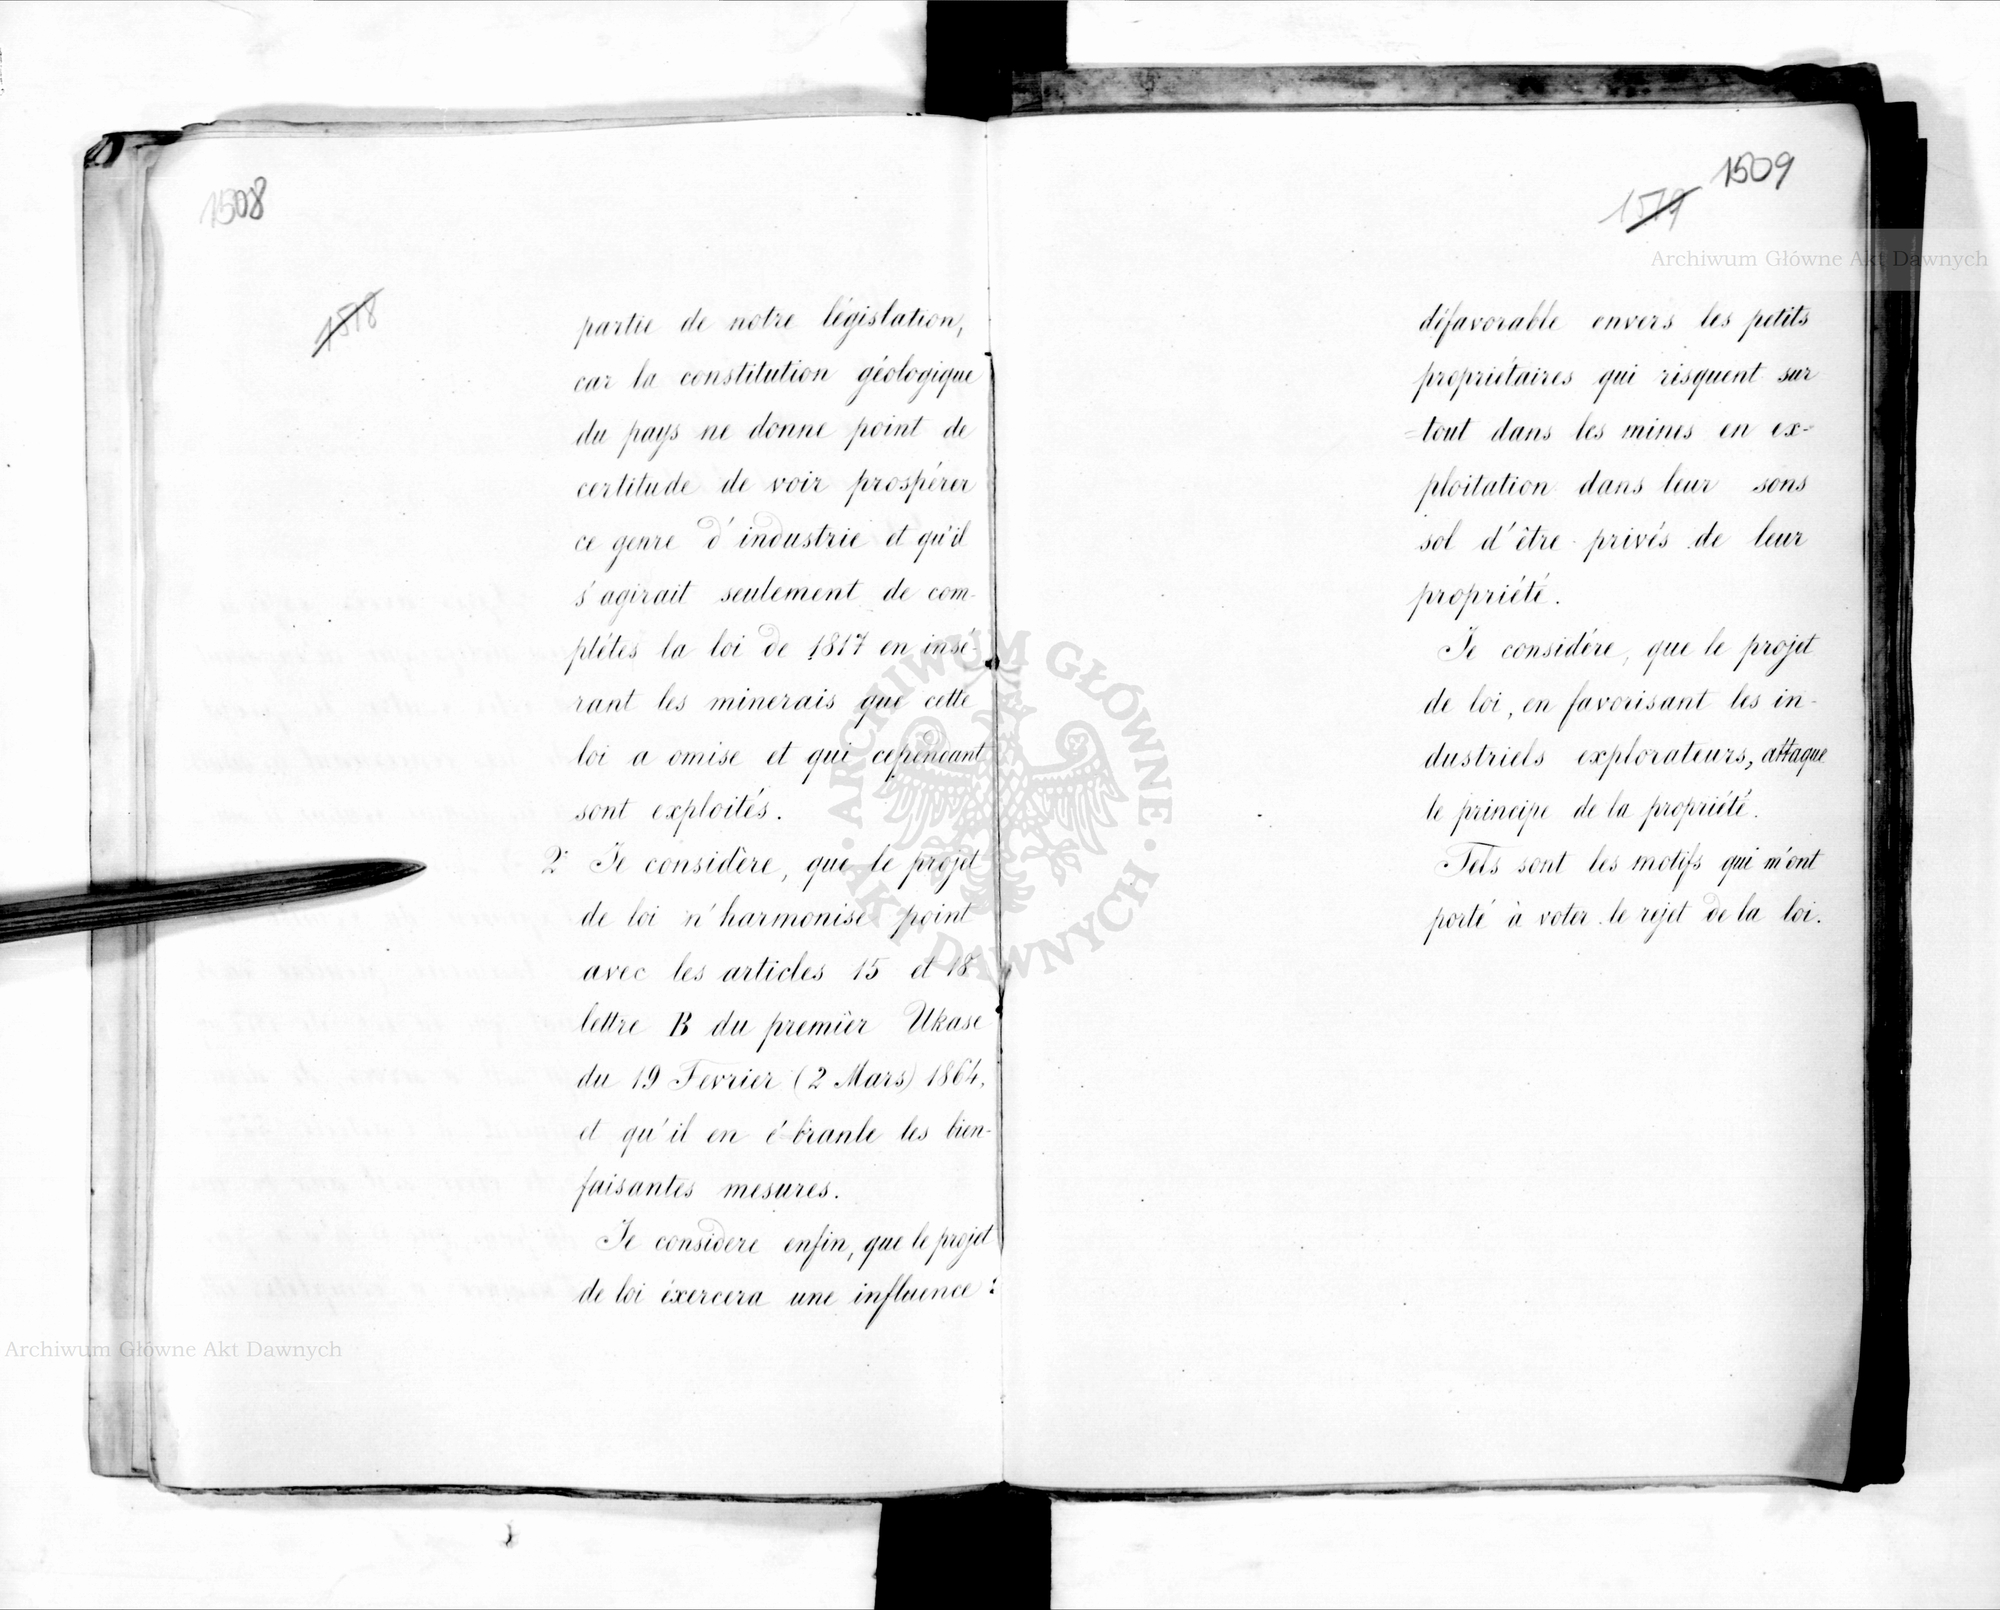 1508
1578
partie de notre législation,
car la constitution géologique
du pays ne donne point de
certitude de voir prospérer
ce genre d'industrie et qu'il
s'agirait seulement de com-
plétes la loi de 1817 en insé-
rant les minerais que cette
loi a omise et qui cependant
sont exploités.
2° Je considère, que le projet
de loi n'harmonise point
avec les articles 15 et 18
lettre B du premier Ukase
du 19 Fevrier (2 Mars) 1864,
et qu'il en ébranle les bien-
faisantes mesures.
Je considere enfin, que le projet
de loi éxercera une influence :
Archiwum Główne Akt Dawnych
1509
1579
Archiwum Główne Akt Dawnych
défavorable envers les petits
propriétaires qui risquent sur
=tout dans les mines en ex=
ploitation dans leur sons
sol d'être privés de leur
propriété.
Je considère, que le projet
de loi, en favorisant les in-
dustriels explorateurs, attaque
le principe de la propriété.
Tels sont les motifs qui m'ont
porté à voter le rejet de la loi.
ARCHIWUM GŁÓWNE
AKT DAWNYCH